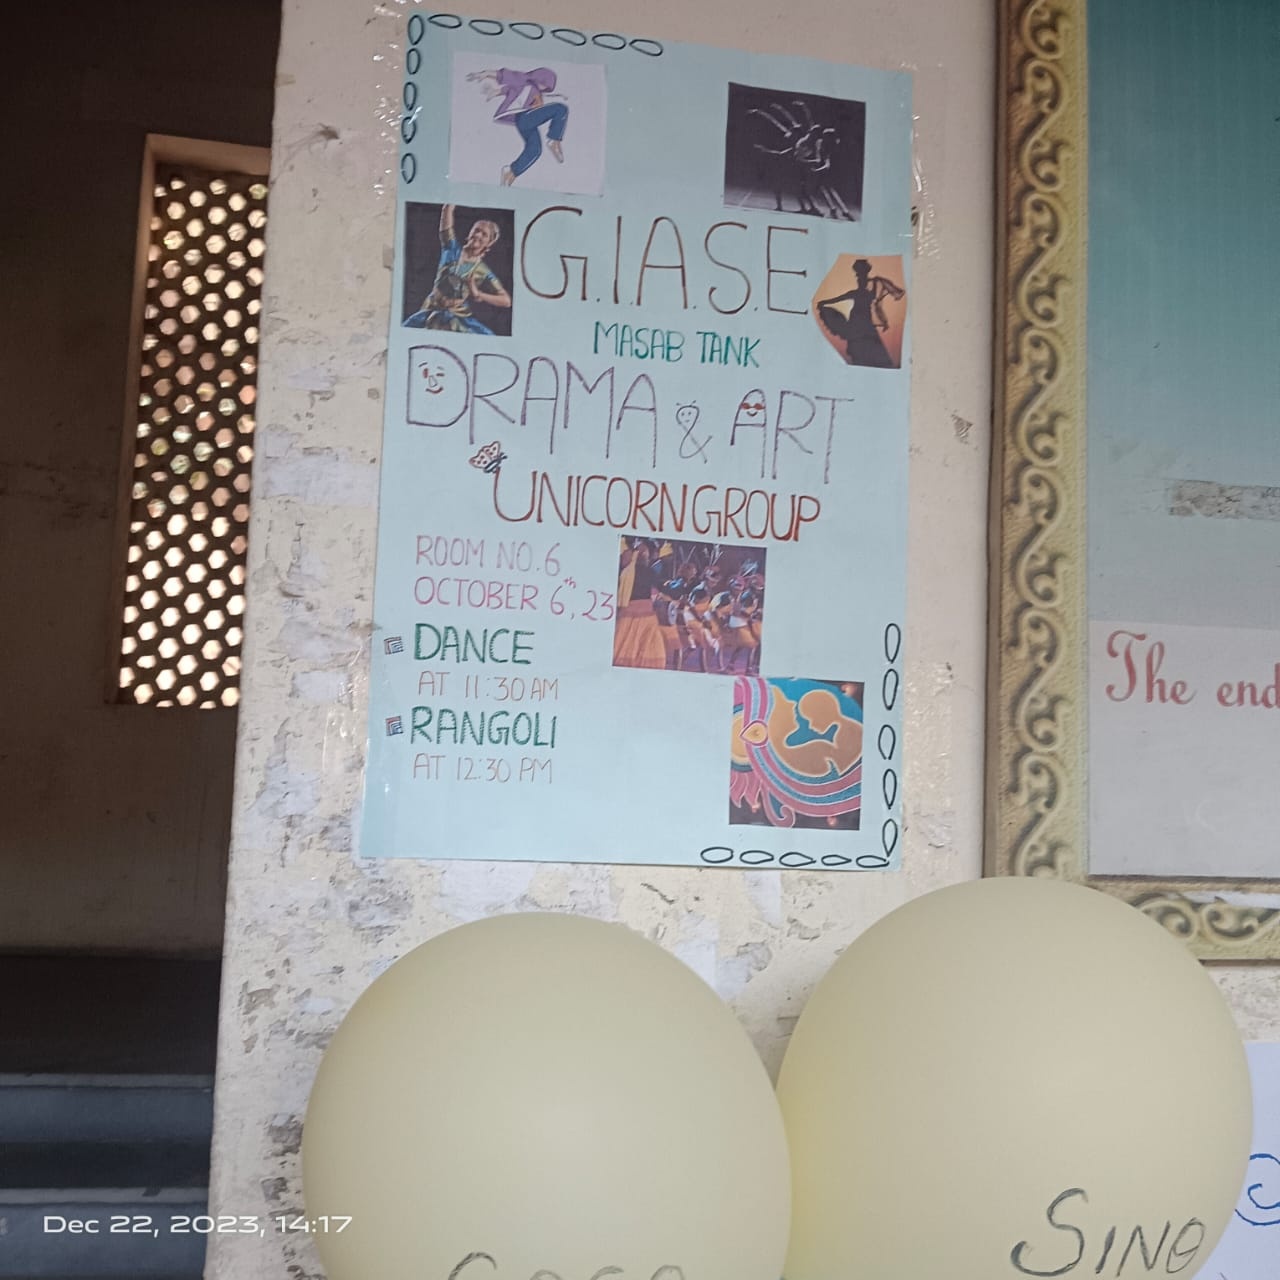 G.I.A.S.E
MASAB TANK
DRAMA & ART
UNICORN GROUP
ROOM NO.6
OCTOBER 6th, 23
DANCE
AT 11:30 AM
RANGOLI
AT 12:30 PM
The end
Dec 22, 2023, 14:17